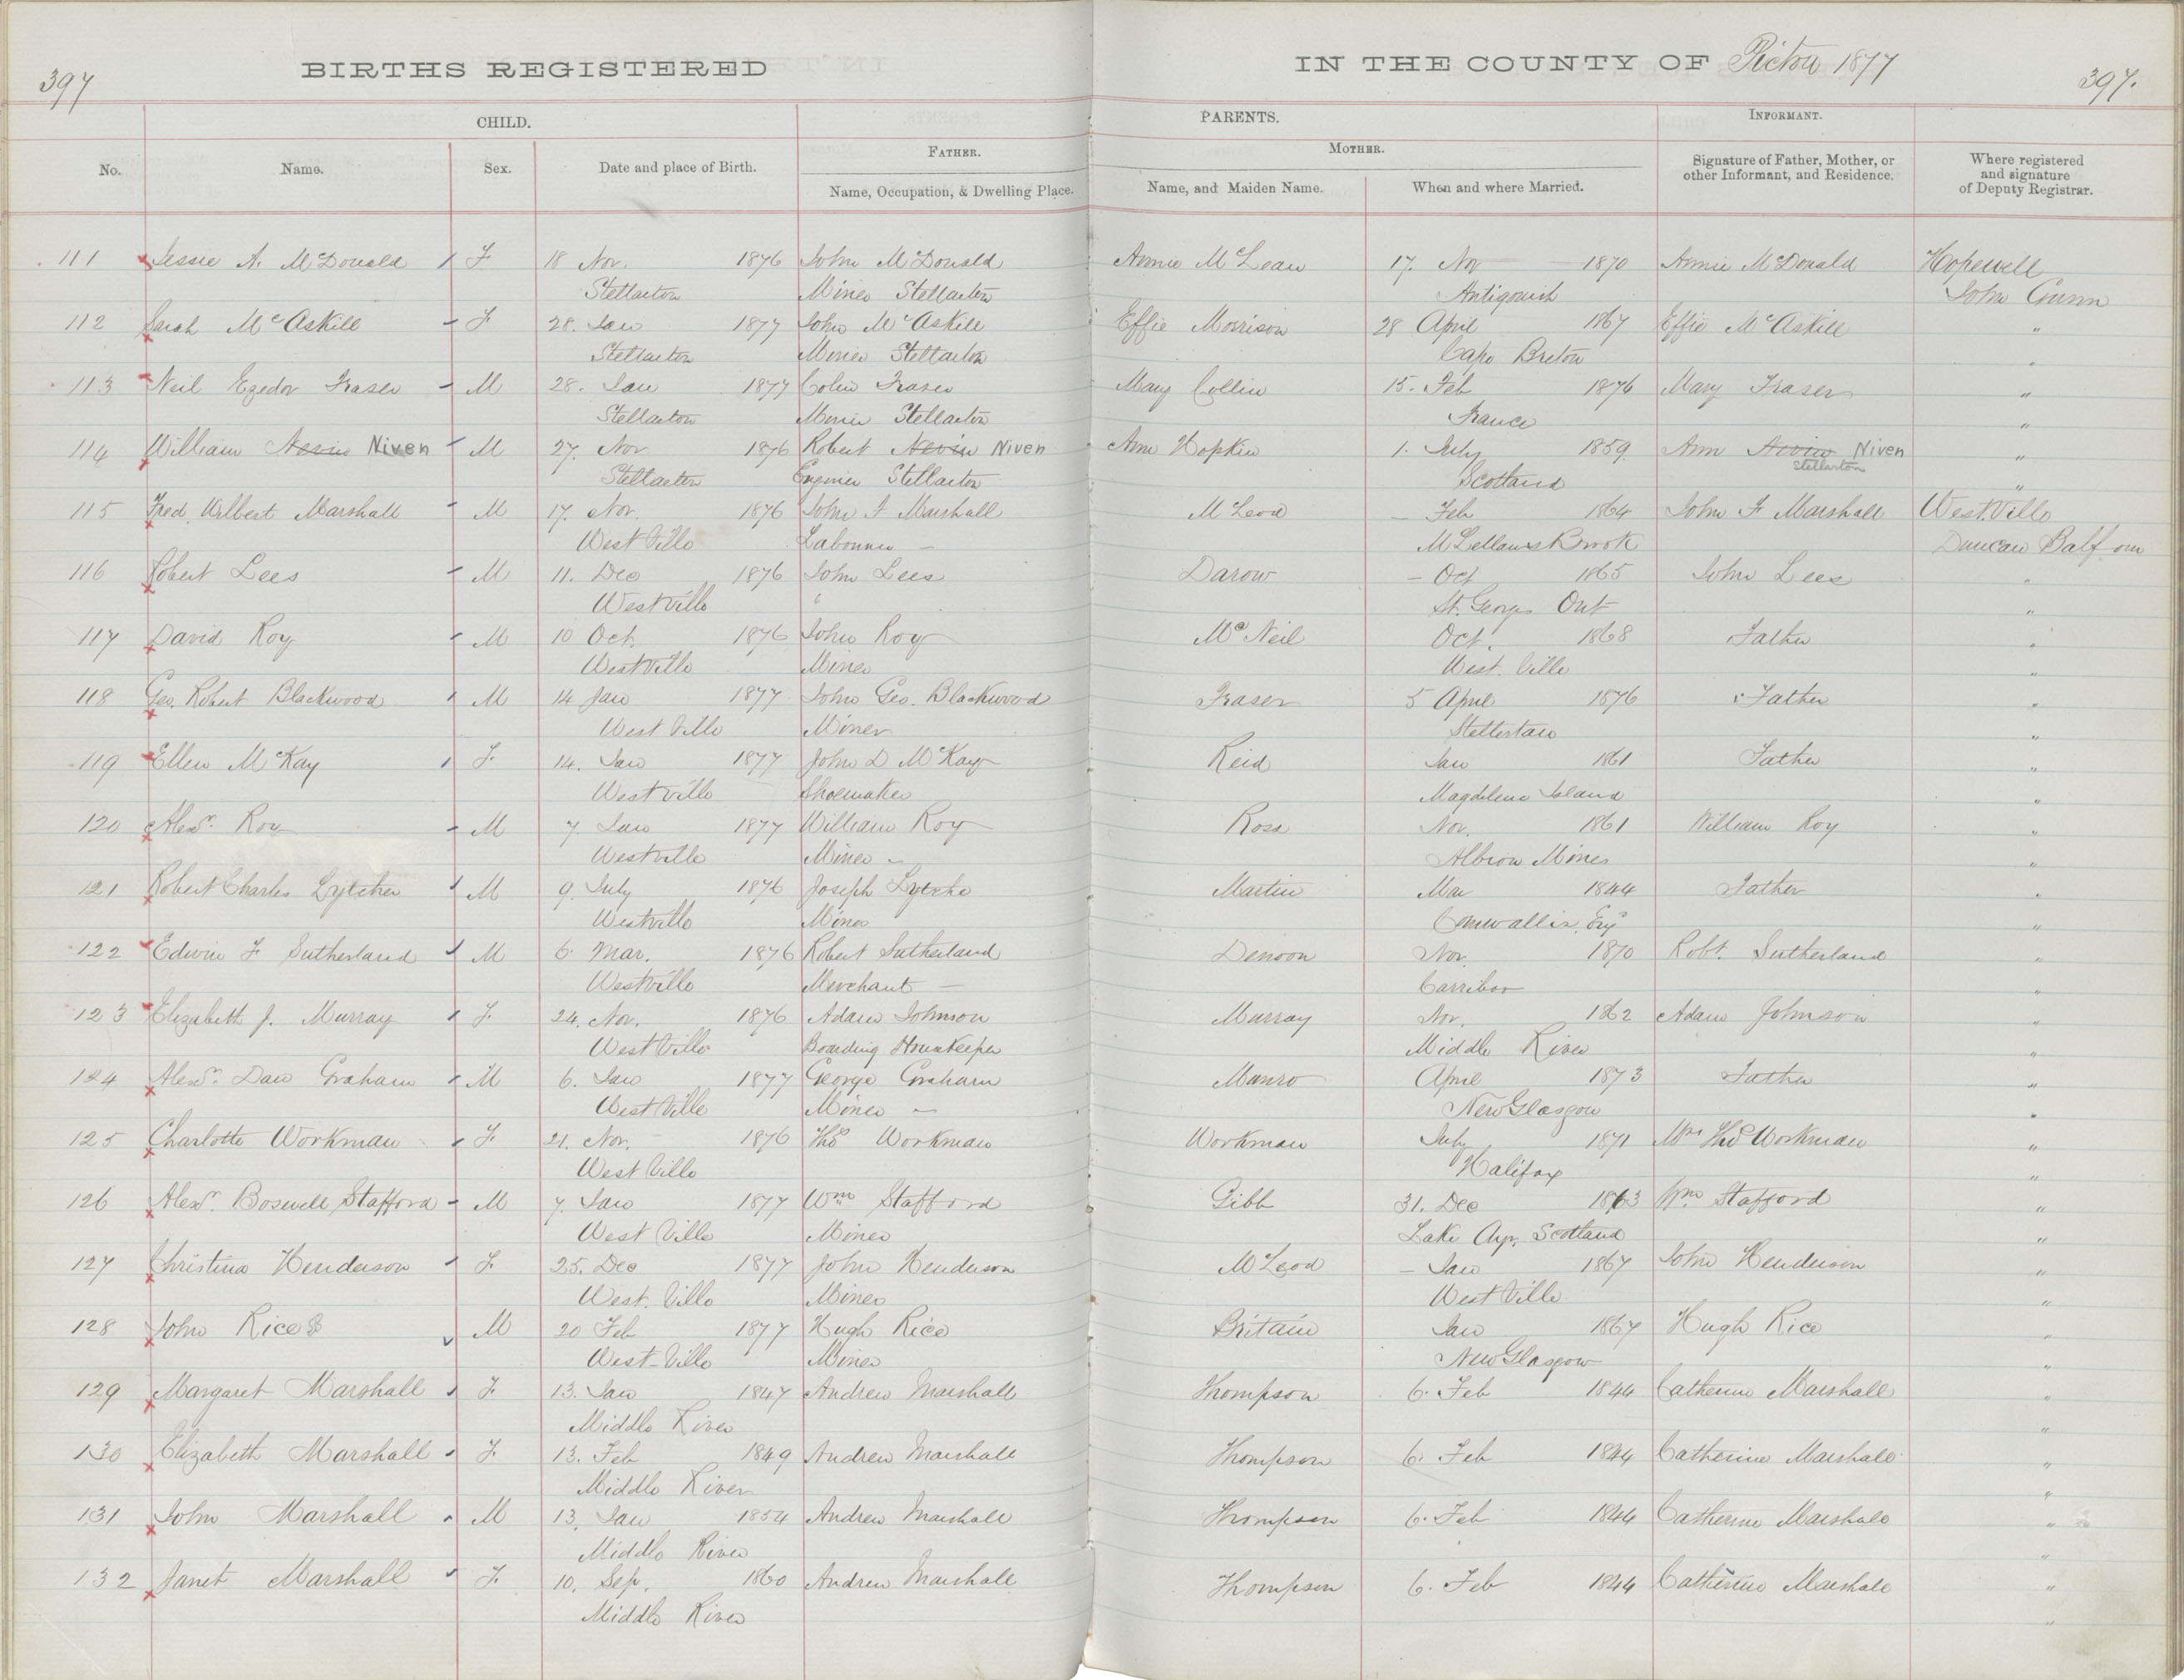 397
BIRTHS REGISTERED
IN THE COUNTY OF Pictou 1877
397.
CHILD.
PARENTS.
INFORMANT.
No.
Name.
Sex.
Date and place of Birth.
FATHER.
Name, Occupation, & Dwelling Place.
MOTHER.
Name, and Maiden Name.
When and where Married.
Signature of Father, Mother, or
other Informant, and Residence.
Where registered
and signature
of Deputy Registrar.
111 Jessie A. McDonald F 18 Nov. 1876 John McDonald Annie McLean 17. Nov 1870 Annie McDonald Hopewell
Stellarton Miner Stellarton Antigonish John Gunn
112 Sarah McAskill F 28. Jan 1877 John McAskill Effie Morrison 28 April 1867 Effie McAskill "
Stellarton Miner Stellarton Cape Breton "
113 Neil Ezedor Fraser M 28. Jan 1877 Colin Fraser Mary Collin 15. Feb 1876 Mary Fraser "
Stellarton Miner Stellarton France "
114 William Nevin Niven M 27. Nov 1876 Robert Nevin Niven Ann Hopkin 1. July 1859. Ann Nevin Niven "
Stellarton Enginer Stellarton Scotland Stellarton "
115 Fred. Wilbert Marshall M 17. Nov. 1876 John F Marshall McLeod – Feb 1864 John F Marshall West Ville
West Ville Labourer – McLellans Brook Duncan Balfour
116 Robert Lees M 11. Dec 1876 John Lees Darow – Oct 1865 John Lees "
Westville " St. Georges Ont "
117 David Roy M 10 Oct. 1876 John Roy McNeil Oct. 1868 Father "
Westville Miner West. Ville "
118 Geo. Robert Blackwood M 14 Jan 1877 John Geo. Blackwood Fraser 5 April 1876 Father "
West Ville Miner Stellertan "
119 Ellen McKay F. 14. Jan 1877 John D McKay Reid Jan 1861 Father "
Westville Shoemaker Magdelene Island "
120 Alexr. Roy M 7. Jan 1877 William Roy Ross Nov. 1861 William Roy "
Westville Miner – Albion Mines "
121 Robert Charles Lytcher M 9. July 1876 Joseph Martin Mar 1844 Father "
Westville Miner Cornwallis "
122 Edwin F Sutherland M 6 Mar. 1876 Robert Sutherland Denoon Nov. 1870 Robt. Sutherland "
Westville Merchant – Carriboo "
123 Elizabeth J. Murray F. 24. Nov. 1876 Adam Johnson Murray Nov. 1862 Adam Johnson "
West Ville Boarding Housekeeper Middle River "
124 Alexr. Dan Graham M 6. Jan 1877 George Graham Munro April 1873 Father "
West Ville Miner – New Glasgow "
125 Charlotte Workman F. 21. Nov. 1876 Thos Workman Workman July 1871 Mrs Thos Workman "
West Ville Halifax "
126 Alexr. Boswell Stafford M 7. Jan 1877 Wm Stafford Gibb 31. Dec 1863 Wm. Stafford "
West Ville Miner Lake Ayr, Scotland "
127 Christina Henderson F. 25. Dec 1877 John Henderson McLeod – Jan 1867 John Henderson "
West. Ville Miner West Ville "
128 John Rice M 20 Feb 1877 Hugh Rice Britain Jan 1867 Hugh Rice "
West-Ville Miner New Glasgow "
129 Margaret Marshall F. 13. Jan 1847 Andrew Marshall Thompson 6. Feb 1844 Catherine Marshall "
Middle River "
130 Elizabeth Marshall F. 13. Feb 1849 Andrew Marshall Thompson 6. Feb 1844 Catherine Marshall "
Middle River "
131 John Marshall M 13. Jan 1854 Andrew Marshall Thompson 6. Feb 1844 Catherine Marshall "
Middle River "
132 Janet Marshall F. 10. Sep. 1860 Andrew Marshall Thompson 6. Feb 1844 Catherine Marshall "
Middle River "